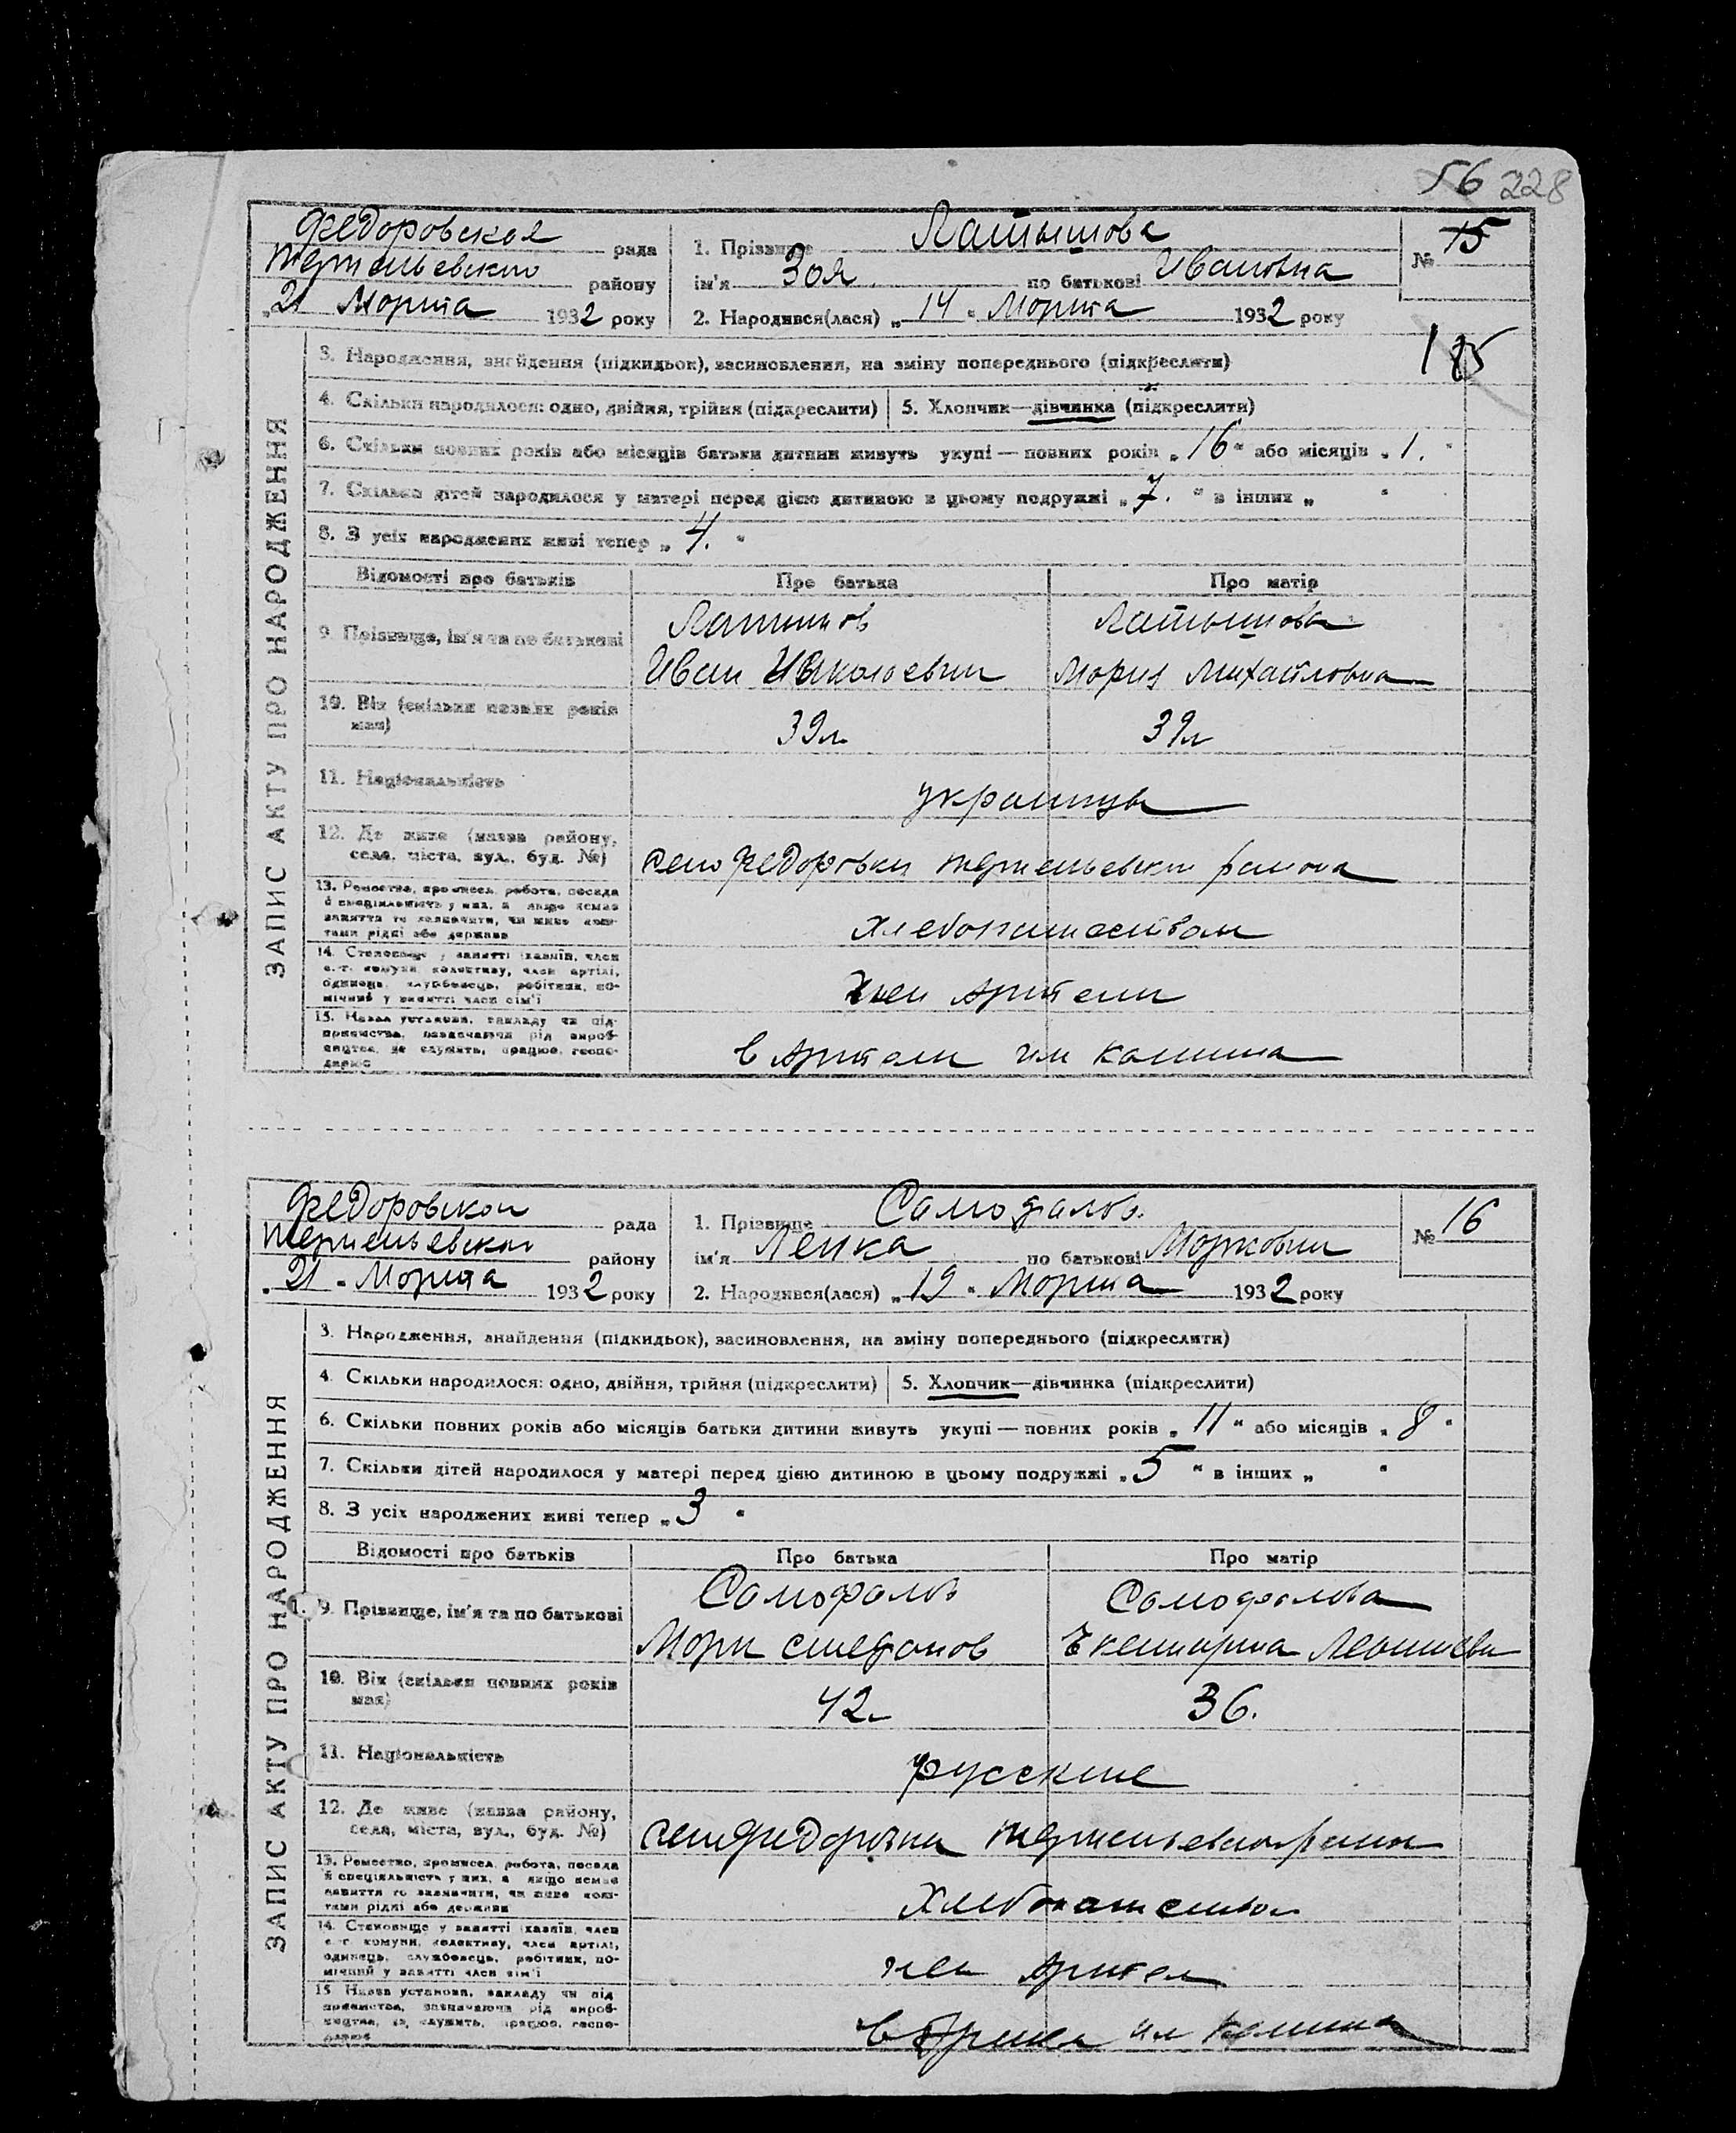 56 228
Федоровская рада
районy
„21 Марта 1932 року
1. Прізвище Латышова
ім'я Зоя по батькові Ивановна
2. Народився(лася) „14“ Марта 1932 року
№ 15
ЗАПИС АКТУ ПРО НАРОДЖЕННЯ
3. Народження, знайдення (підкидьок), засиновлення, на зміну попереднього (підкреслити)
4. Скільки народилося: одно, двійня, трійня (підкреслити) 5. Хлопчик—дівчинка (підкреслити)
6. Скільки повних років або місяців батьки дитини живуть укупі — повних років „16“ або місяців „1.“
7. Скільки дітей народилося у матері перед цією дитиною в цьому подружжі „7.“ в інших „ “
8. З усіх народжених живі тепер „4.“
Відомості про батьків Про батька Про матір
9. Прізвище, ім'я та по батькові
Латышов Латышова
Иван Мария Михайловна
10. Вік (скільки повних років має)
39л. 39л
11. Національність
украинцы
12. Де живе (назва району,
села, міста, вул., буд. №)
село Федоровка района
13. Ремество, промисел, робота, посада
й спеціяльність у них, а якщо немає
заняття то зазначити, чи живе кош-
тами рідні або держави
Хлебопашеством
14. Становище у занятті (хазяїн, член
с.-г. комуни, колективу, член артілі,
одинець, службовець, робітник, по-
мічний у занятті член сім'ї
член Артели
15. Назва установи, закладу чи під-
приємства, зазначаючи рід вироб-
ництва, де служить, працює, госпо-
дарює
в Артели им Калинина
Федоровской рада
району
„21“ Марта 1932 року
1. Прізвище Самофалов.
ім'я Ленка по батькові Маркович
2. Народився(лася) „19“ Марта 1932 року
№ 16
ЗАПИС АКТУ ПРО НАРОДЖЕННЯ
3. Народження, знайдення (підкидьок), засиновлення, на зміну попереднього (підкреслити)
4. Скільки народилося: одно, двійня, трійня (підкреслити) 5. Хлопчик—дівчинка (підкреслити)
6. Скільки повних років або місяців батьки дитини живуть укупі — повних років „11“ або місяців „8“
7. Скільки дітей народилося у матері перед цією дитиною в цьому подружжі „5“ в інших „ “
8. З усіх народжених живі тепер „3“
Відомості про батьків Про батька Про матір
9. Прізвище, ім'я та по батькові
Самофалов Самофалова
Марк Стефанов Екатерина
10. Вік (скільки повних років має)
42. 36.
11. Національність
русские
12. Де живе (назва району,
села, міста, вул., буд. №)
село Федоровка
13. Ремество, промисел, робота, посада
й спеціяльність у них, а якщо немає
заняття то зазначити, чи живе кош-
тами рідні або держави
Хлебопашеством
14. Становище у занятті (хазяїн, член
с.-г. комуни, колективу, член артілі,
одинець, службовець, робітник, по-
мічний у занятті член сім'ї
член Артели
15. Назва установи, закладу чи під-
приємства, зазначаючи рід вироб-
ництва, де служить, працює, госпо-
дарює
в Артели им Калинина